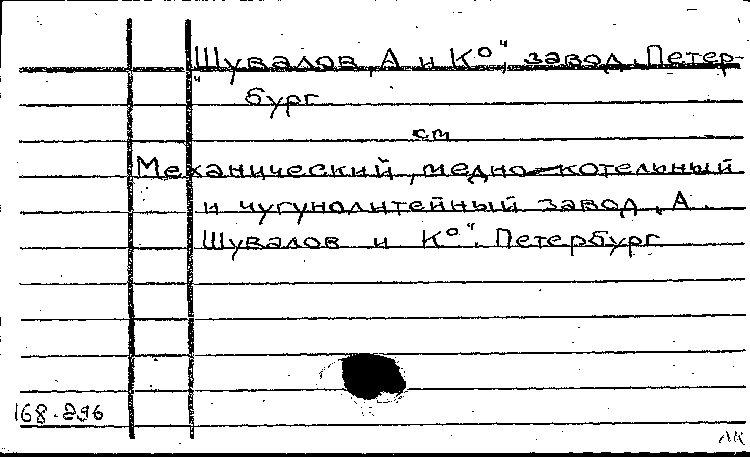 „Шувалов, А и К°“, завод. Петер-
бург
см
Механический, медно-котельный
и чугунолитейный завод „А.
Шувалов и К°“. Петербург
168-296
АК